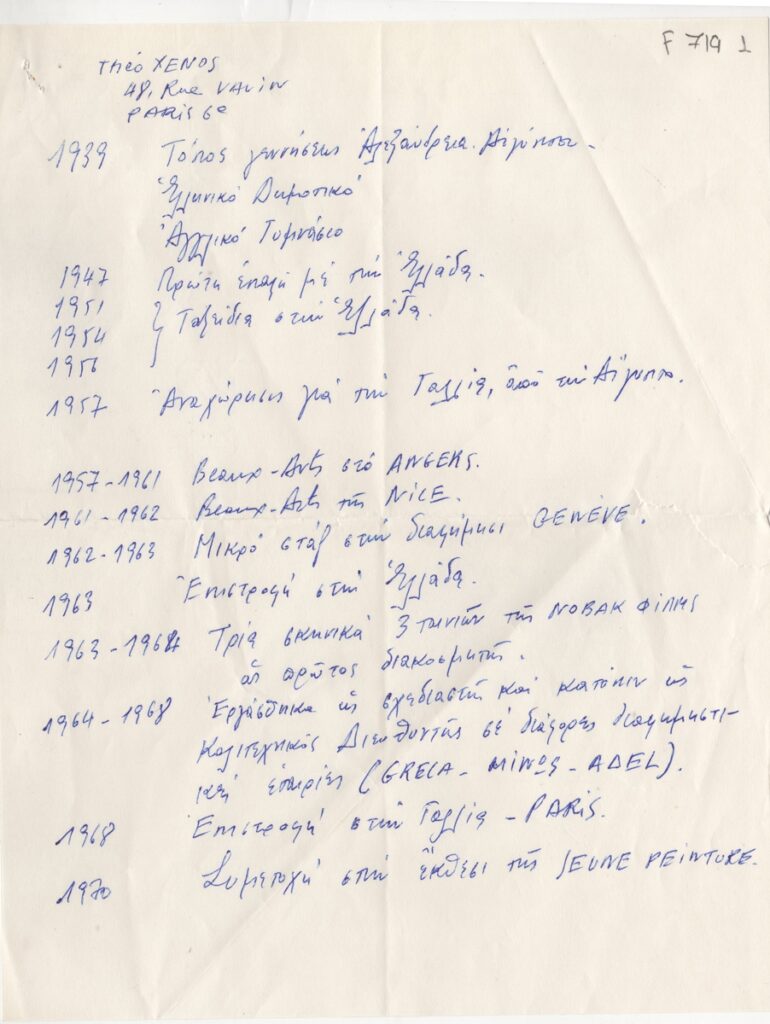 F 719 1
Théo XENOS
48, Rue VAVIN
PARIS 6e
1939 Τόπος γεννήσεως Ἀλεξάνδρεια. Αἰγύπτου -
Ἑλληνικό Δημοτικό
Ἀγγλικό Γυμνάσιο
1947 Πρώτη ἐπαφή μέ τήν Ἑλλάδα.
1951 } Ταξείδια στήν Ἑλλάδα.
1954
1956
1957 Ἀναχώρησις γιά τήν Γαλλία, ἀπό τήν Αἴγυπτο.
1957-1961 Beaux-Arts στό ANGERS.
1961-1962 Beaux-Arts τῆς NICE.
1962-1963 Μικρό στάζ στήν διαφήμησι GENÈVE.
1963 Ἐπιστροφή στήν Ἑλλάδα.
1963-1964 Τρία σκηνικά 3 ταινιών τῆς ΝΟΒΑΚ ΦΙΛΜΣ
ὡς πρῶτος διακοσμητής.
1964-1968 Ἐργάσθηκα ὡς σχεδιαστής καί κατόπιν ὡς
Καλιτεχνικός Διευθυντής σέ διάφορες διαφημηστι-
κές ἑταιρίες (GRECA - ΜΙΝΩΣ - ADEL).
1968 Ἐπιστροφή στήν Γαλλία - PARIS.
1970 Συμετοχή στήν ἔκθεσι τῆς JEUNE PEINTURE.